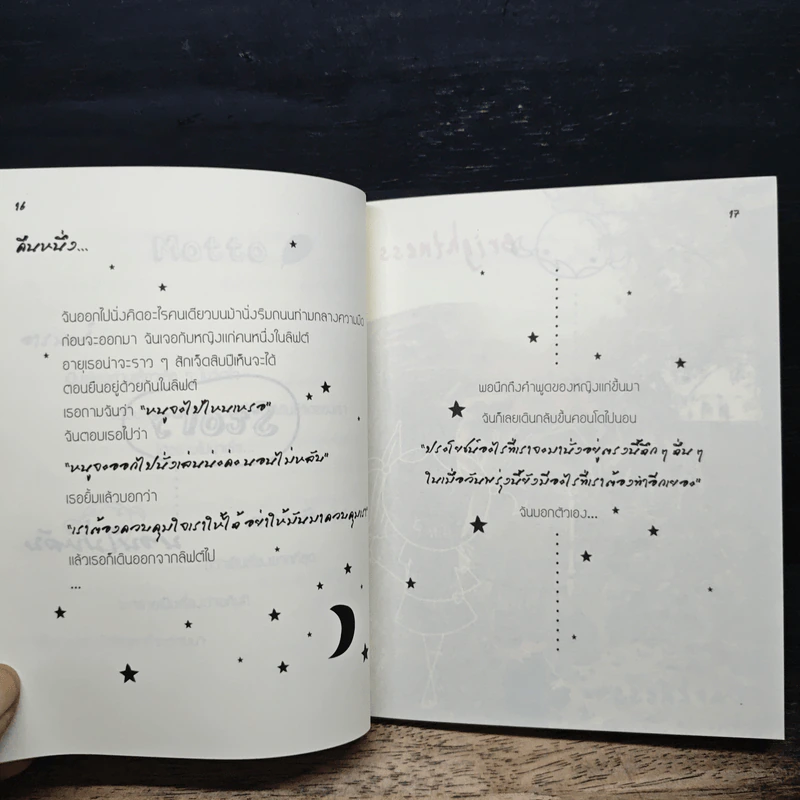 16
คืนหนึ่ง...
ฉันออกไปนั่งคิดอะไรคนเดียวบนม้านั่งริมถนนท่ามกลางความมืด
ก่อนจะออกมา ฉันเจอกับหญิงแก่คนหนึ่งในลิฟต์
อายุเธอน่าจะราว ๆ สักเจ็ดสิบปีเห็นจะได้
ตอนยืนอยู่ด้วยกันในลิฟต์
เธอถามฉันว่า "หนูจะไปไหนเหรอ"
ฉันตอบเธอไปว่า
"หนูจะออกไปนั่งเล่นน่ะค่ะ นอนไม่หลับ"
เธอยิ้มแล้วบอกว่า
"เราต้องควบคุมใจเราให้ได้ อย่าให้มันมาควบคุมเรา
แล้วเธอก็เดินออกจากลิฟต์ไป
...
17
พอนึกถึงคำพูดของหญิงแก่ขึ้นมา
ฉันก็เลยเดินกลับขึ้นคอนโดไปนอน
"ประโยชน์อะไรที่เราจะมานั่งอยู่ตรงนี้ดึก ๆ ดื่น ๆ
ในเมื่อวันพรุ่งนี้ยังมีอะไรที่เราต้องทำอีกเยอะ"
ฉันบอกตัวเอง...